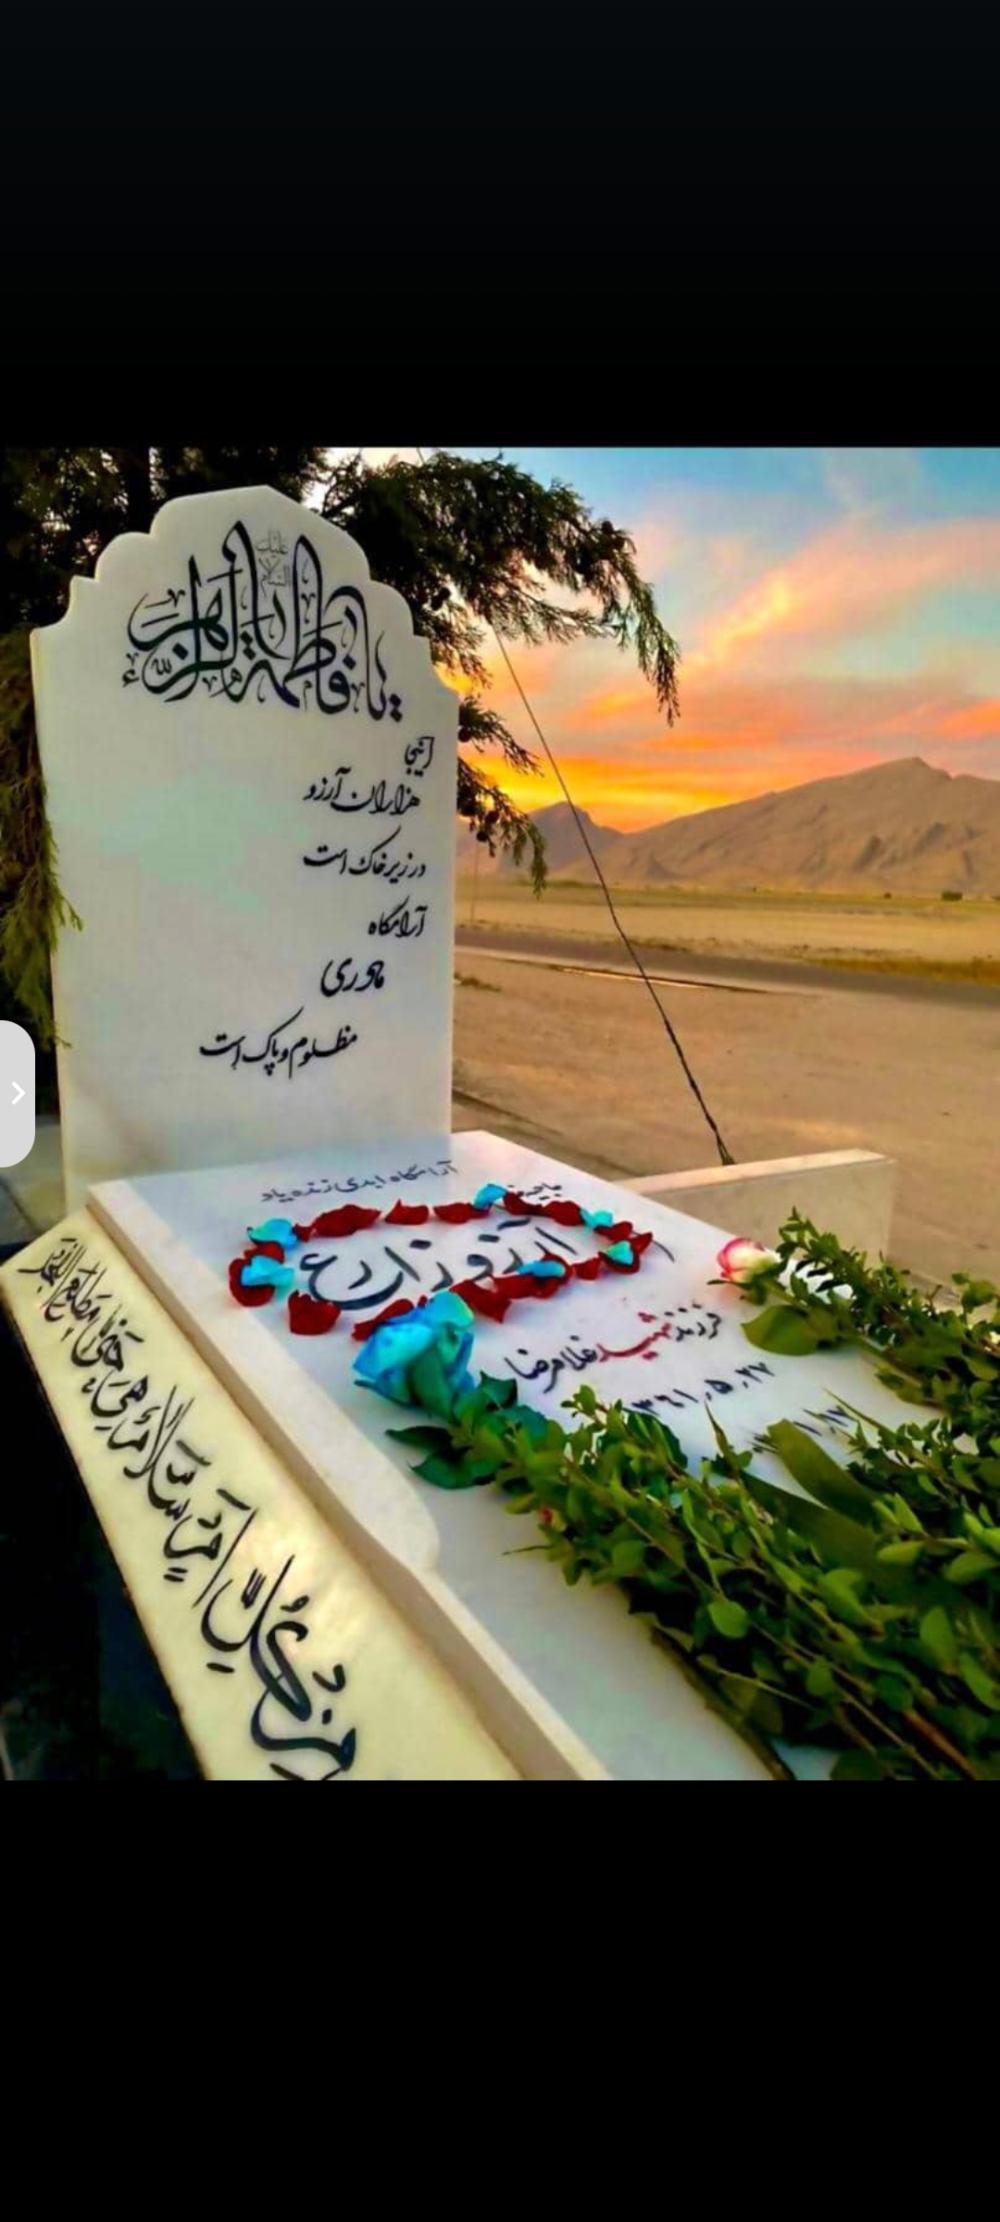 یا فاطمة الزهراء
علیها السلام
اینجا
هزاران آرزو
در زیر خاک است
آرامگاه
مادری
مظلوم و پاک است
آرامگاه ابدی زنده یاد
آرزو زارع
فرزند شهید غلامرضا
۱۳۶۱٫۵٫۲۷
من کل امر سلام هی حتی مطلع الفجر